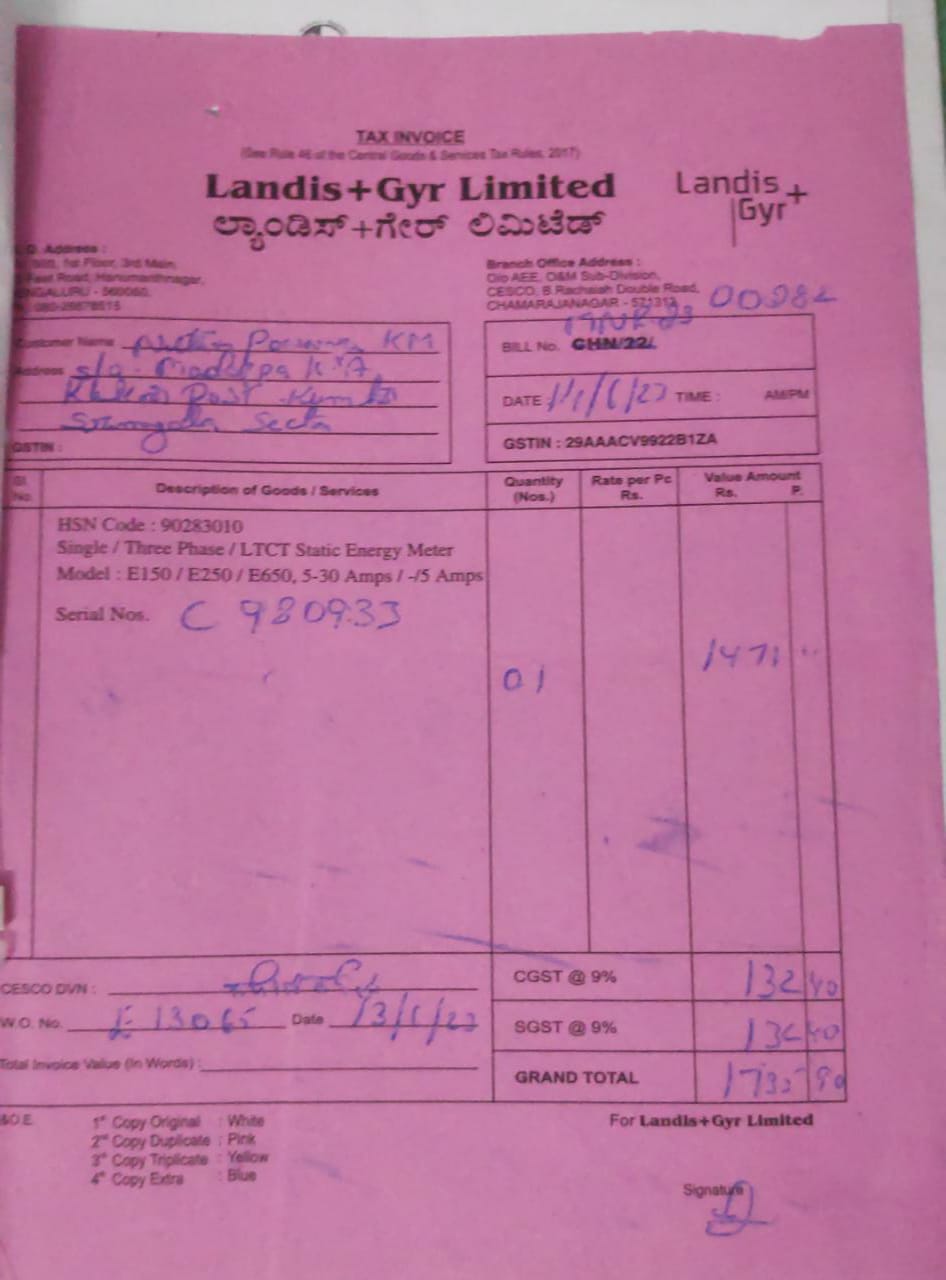 TAX INVOICE
(See Rule 46 of the Central Goods & Services Tax Rules, 2017)
Landis+Gyr Limited
ಲ್ಯಾಂಡಿಸ್+ಗೇರ್ ಲಿಮಿಟೆಡ್
Landis
Gyr+
Address :
1st Floor, 3rd Main,
Road, Hanumanthnagar,
- 560050,
Branch Office Address :
O/o AEE, O&M Sub-Division,
CESCO, B.Rachaiah Double Road,
CHAMARAJANAGAR - 571313
00982
Customer Name KM
Address s/o
GSTIN :
BILL No. CHN/22/
DATE TIME : AM/PM
GSTIN : 29AAACV9922B1ZA
Sl. No.
Description of Goods / Services
Quantity (Nos.)
Rate per Pc Rs.
Value Amount Rs. P.
HSN Code : 90283010
Single / Three Phase / LTCT Static Energy Meter
Model : E150 / E250 / E650, 5-30 Amps / -/5 Amps
Serial Nos. C 980933
01
1471
CESCO DVN :
CGST @ 9% 132 40
W.O. No. 13065 Date
SGST @ 9% 132 40
Total Invoice Value (In Words) :
GRAND TOTAL
&O.E.
1st Copy Original : White
2nd Copy Duplicate : Pink
3rd Copy Triplicate : Yellow
4th Copy Extra : Blue
For Landis+Gyr Limited
Signature